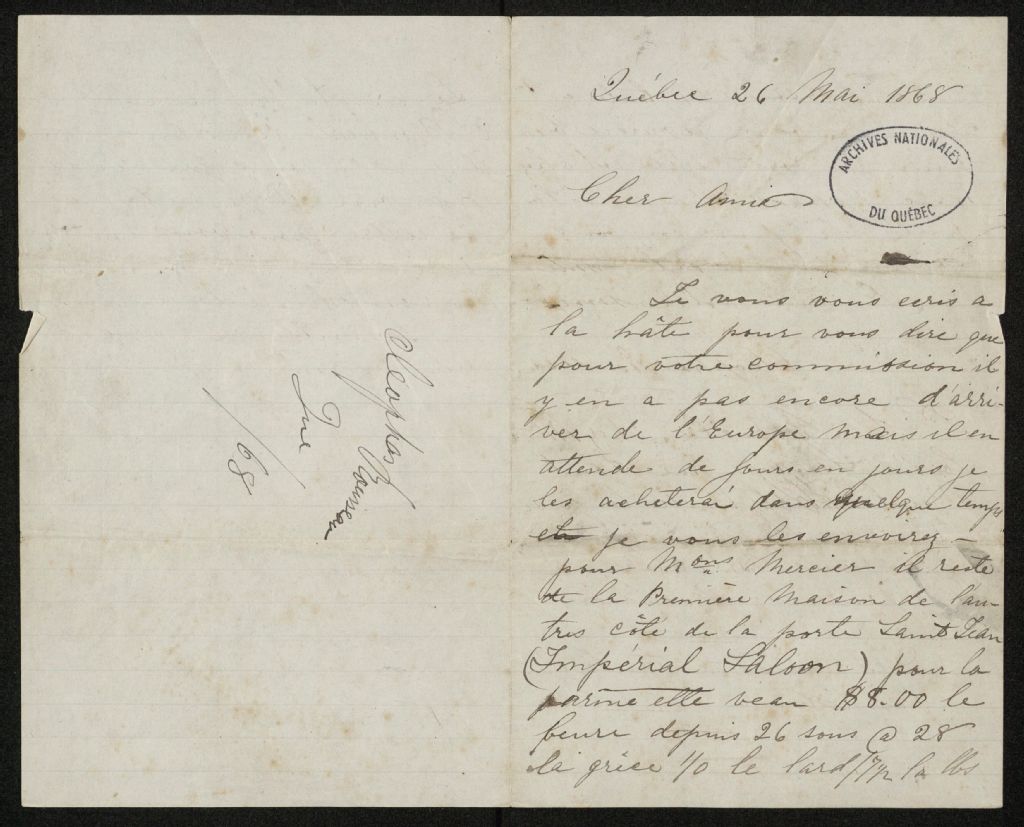 Québec 26 Mai 1868
ARCHIVES NATIONALES
DU QUÉBEC
Cher Ami
Je vous vous ecris a
la hâte pour vous dire que
pour votre commission il
y en a pas encore d'arri-
ver de l'Europe mais il en
attende de jours en jours je
les acheterai dans quelque temps
je vous les envoirez -
pour Mons Mercier il reste
de la Première Maison de l'au-
tres côté de la porte Saint Jean
(Impérial Saloon) pour la
farine elle veau $8.00 le
beure depuis 26 sous @ 28
la grèce 1/0 le lard /7½ la lbs
Cleophas
/68